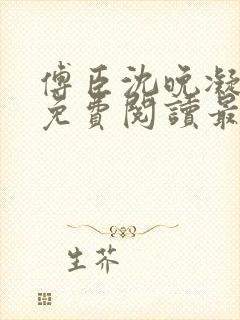 傅臣沈晚凝
免費閱讀最
生芥